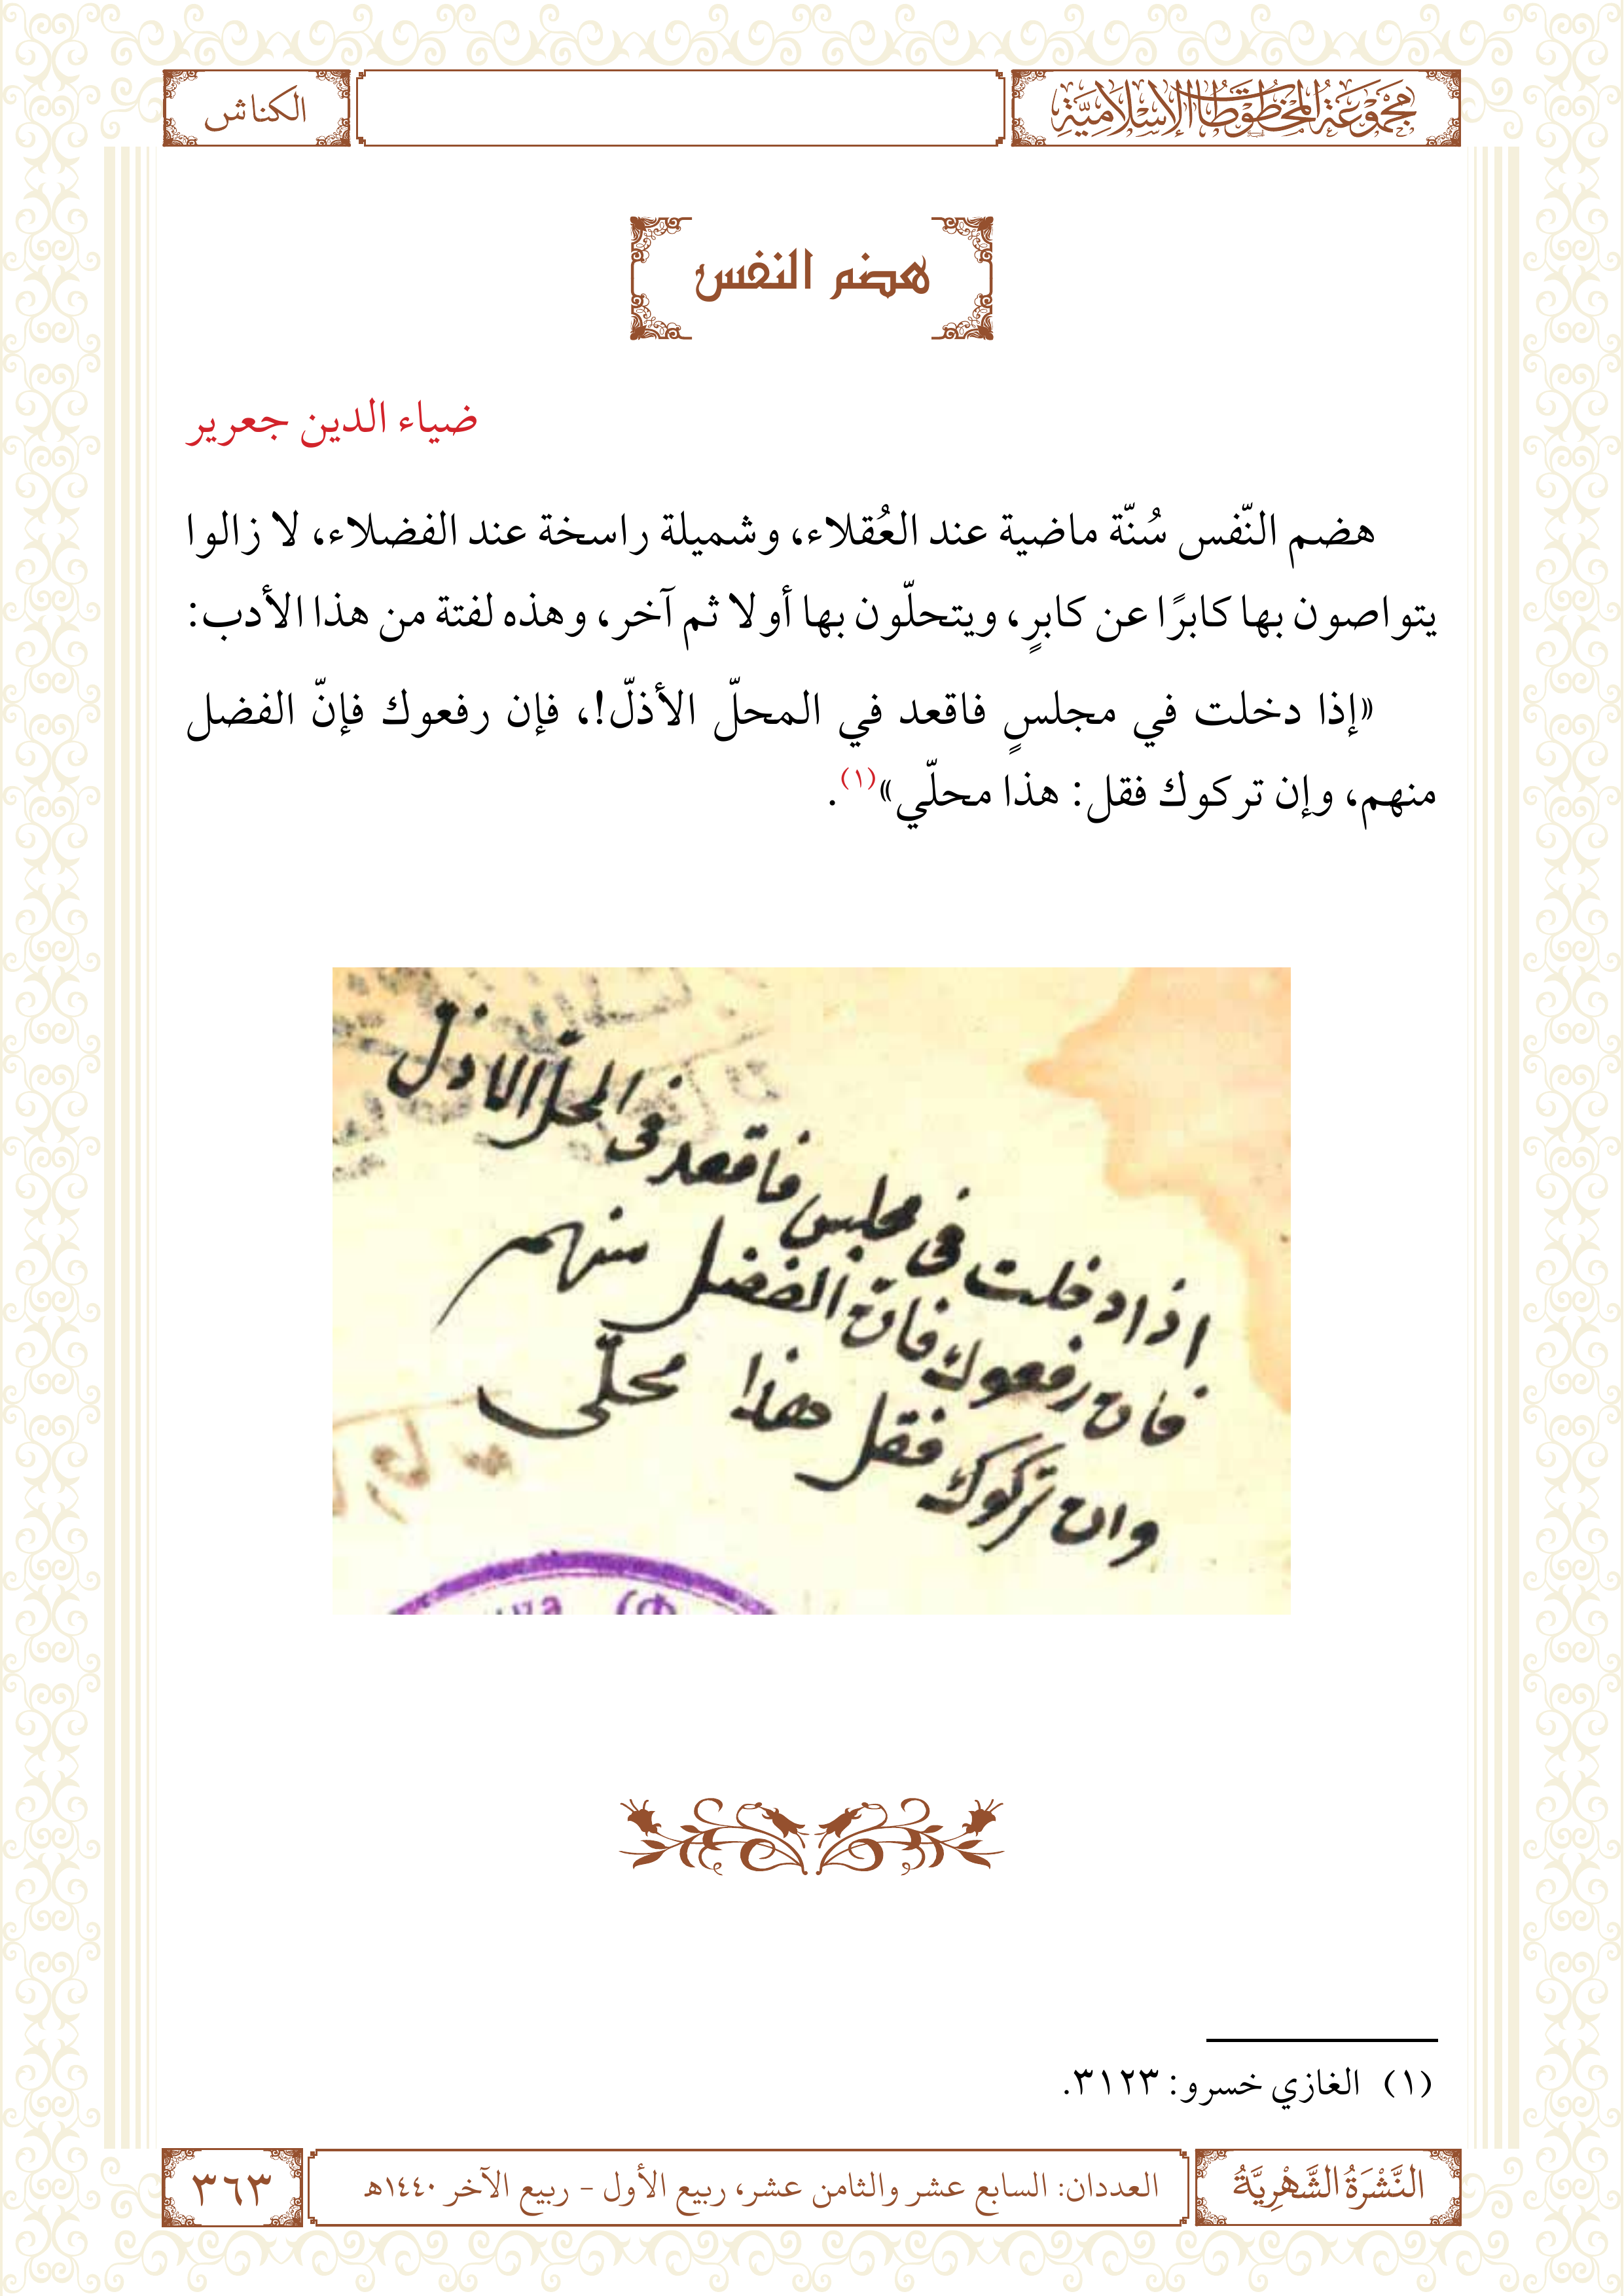 مَجْمُوعَةُ المَخْطُوطَاتِ الإِسْلَامِيَّةِ
الكناش
هضم النفس
ضياء الدين جعرير
هضم النّفس سُنّة ماضية عند العُقلاء، وشميلة راسخة عند الفضلاء، لا زالوا
يتواصون بها كابرًا عن كابرٍ، ويتحلّون بها أولا ثم آخر، وهذه لفتة من هذا الأدب:
«إذا دخلت في مجلسٍ فاقعد في المحلّ الأذلّ!، فإن رفعوك فإنّ الفضل
منهم، وإن تركوك فقل: هذا محلّي»(١).
اذا دخلت فى مجلس فاقعد فى المحلّ الاذلّ
فان رفعوك فانّ الفضل منهم
وان تركوك فقل هذا محلّى
(١) الغازي خسرو: ٣١٢٣.
النَّشْرَةُ الشَّهْرِيَّةُ
العددان: السابع عشر والثامن عشر، ربيع الأول - ربيع الآخر ١٤٤٠هـ
٣٦٣